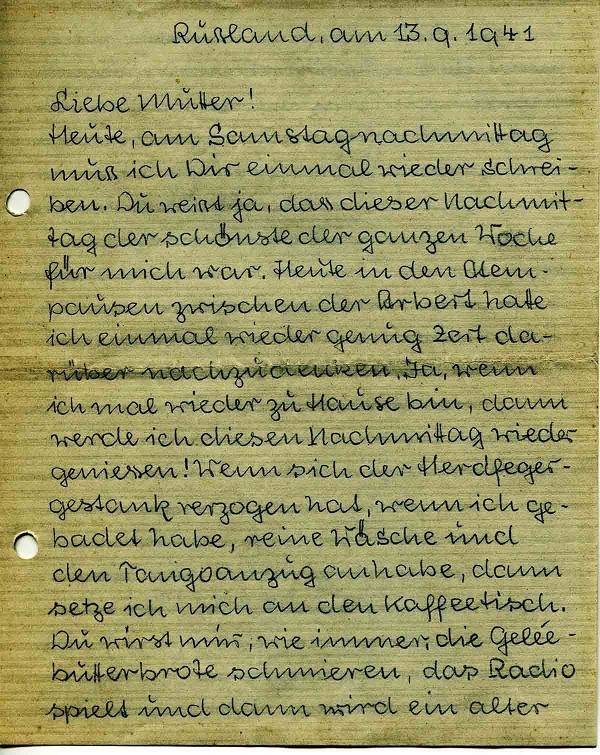 Rußland, am 13.9.1941
Liebe Mutter!
Heute, am Samstagnachmittag
muß ich Dir einmal wieder schrei-
ben. Du weißt ja, daß dieser Nachmit-
tag der schönste der ganzen Woche
für mich war. Heute in den Atem-
pausen zwischen der Arbeit hatte
ich einmal wieder genug Zeit da-
rüber nachzudenken. Ja, wenn
ich mal wieder zu Hause bin, dann
werde ich diesen Nachmittag wieder
geniesen! Wenn sich der Herdfeger-
gestank verzogen hat, wenn ich ge-
badet habe, reine Wäsche und
den Tangoanzug anhabe, dann
setze ich mich an den Kaffeetisch.
Du wirst mir, wie immer, die Gelée-
butterbrote schmieren, das Radio
spielt und dann wird ein alter